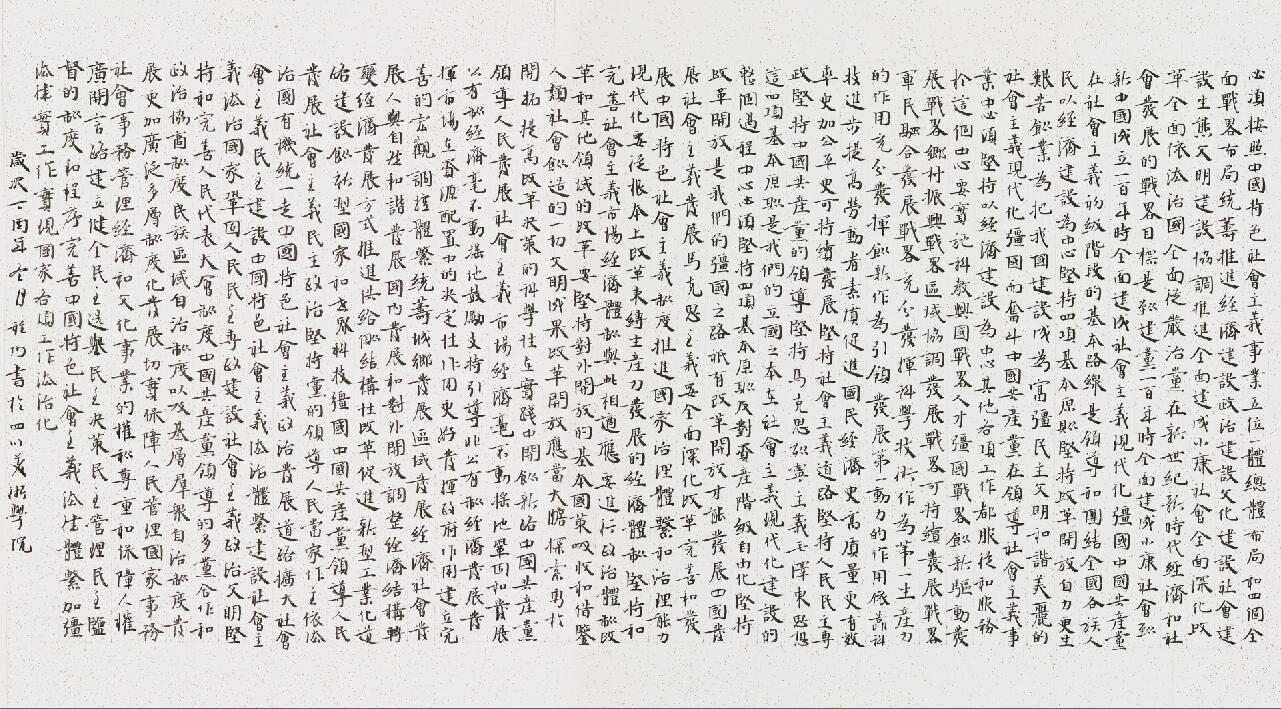 必須按照中國特色社會主義事業五位一體總布局和四個全
面戰略布局統籌推進經濟建設政治建設文化建設社會建
設生態文明建設協調推進全面建成小康社會全面深化改
革全面依法治國全面從嚴治黨在新世紀新時代經濟和社
會發展的戰略目標是到建黨一百年時全面建成小康社會到
新中國成立一百年時全面建成社會主義現代化彊國中國共產黨
在社會主義初級階段的基本路線是領導和團結全國各族人
民以經濟建設為中心堅持四項基本原則堅持改革開放自力更生
艱苦創業為把我國建設成為富彊民主文明和諧美麗的
社會主義現代化彊國而奮斗中國共產黨在領導社會主義事
業中必須堅持以經濟建設為中心其他各項工作都服從和服務
於這個中心要實施科教興國戰略人才彊國戰略創新驅動發
展戰略鄉村振興戰略區域協調發展戰略可持續發展戰略
軍民融合發展戰略充分發揮科學技術作為第一生產力
的作用充分發揮創新作為引領發展第一動力的作用依靠科
技進步提高勞動者素質促進國民經濟更高質量更有效
率更加公平更可持續發展堅持社會主義道路堅持人民民主專
政堅持中國共產黨的領導堅持馬克思列寧主義毛澤東思想
這四項基本原則是我們的立國之本在社會主義現代化建設的
整個過程中必須堅持四項基本原則反對資產階級自由化堅持
改革開放是我們的彊國之路祇有改革開放才能發展中國發
展社會主義發展馬克思主義要全面深化改革完善和發
展中國特色社會主義制度推進國家治理體繫和治理能力
現代化要從根本上改革束縛生產力發展的經濟體制堅持和
完善社會主義市場經濟體制與此相適應要進行政治體制改
革和其他領域的改革要堅持對外開放的基本國策吸收和借鑒
人類社會創造的一切文明成果改革開放應當大膽探索勇於
開拓提高改革決策的科學性在實踐中開創新路中國共產黨
領導人民發展社會主義市場經濟毫不動搖地鞏固和發展
公有制經濟毫不動搖地鼓勵支持引導非公有制經濟發展發
揮市場在資源配置中的決定性作用更好發揮政府作用建立完
善的宏觀調控體繫統籌城鄉發展區域發展經濟社會發
展人與自然和諧發展國內發展和對外開放調整經濟結構轉
變經濟發展方式推進供給側結構性改革促進新型工業化道
路建設創新型國家和世界科技彊國中國共產黨領導人民
發展社會主義民主政治堅持黨的領導人民當家作主依法
治國有機統一走中國特色社會主義政治發展道路擴大社會
會主義民主建設中國特色社會主義法治體繫建設社會主
義法治國家鞏固人民民主專政建設社會主義政治文明堅
持和完善人民代表大會制度中國共產黨領導的多黨合作和
政治協商制度民族區域自治制度以及基層羣眾自治制度發
展更加廣泛多層制度化發展切實保障人民管理國家事務
社會事務管理經濟和文化事業的權利尊重和保障人權
廣開言路建立健全民主選舉民主決策民主管理民主監
督的制度和程序完善中國特色社會主義法律體繫加彊
法律實工作實現國家各項工作法治化
歲次丁酉年 書於四川美術學院